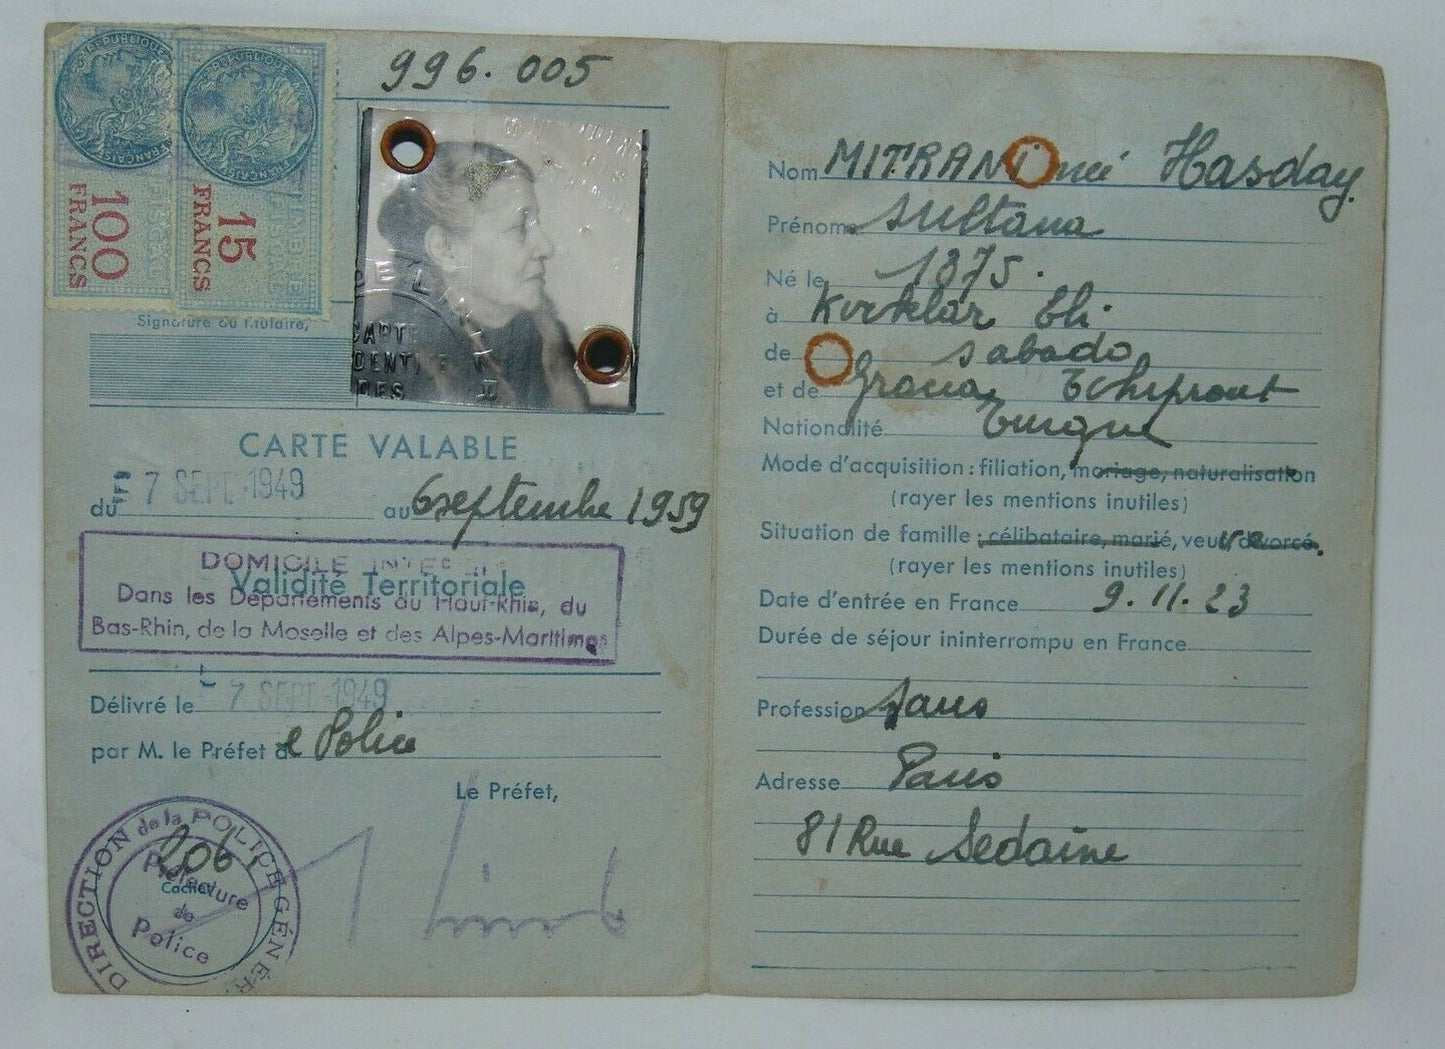 RÉPUBLIQUE FRANÇAISE
100 FRANCS
FISCAL
RÉPUBLIQUE FRANÇAISE
15 FRANCS
TIMBRE FISCAL
996.005
Signature du titulaire,
CARTE
D'IDENTITÉ
CARTE VALABLE
du 7 SEPT 1949 au 6 septembre 1959
DOMICILE INTERDIT
Validité Territoriale
Dans les Départements du Haut-Rhin, du
Bas-Rhin, de la Moselle et des Alpes-Maritimes
Délivré le 7 SEPT 1949
par M. le Préfet de Police
Le Préfet,
DIRECTION de la POLICE GÉNÉR
206
Cachet
Préfecture
de
Police
Nom MITRANI née Hasday.
Prénoms Sultana
Né le 1875.
à Kirklar Eli
de Sabado
et de Grana
Nationalité Turque
Mode d'acquisition : filiation, mariage, naturalisation
(rayer les mentions inutiles)
Situation de famille : célibataire, marié, veuve divorcé.
(rayer les mentions inutiles)
Date d'entrée en France 9.11.23
Durée de séjour ininterrompu en France
Profession sans
Adresse Paris
81 Rue Sedaine